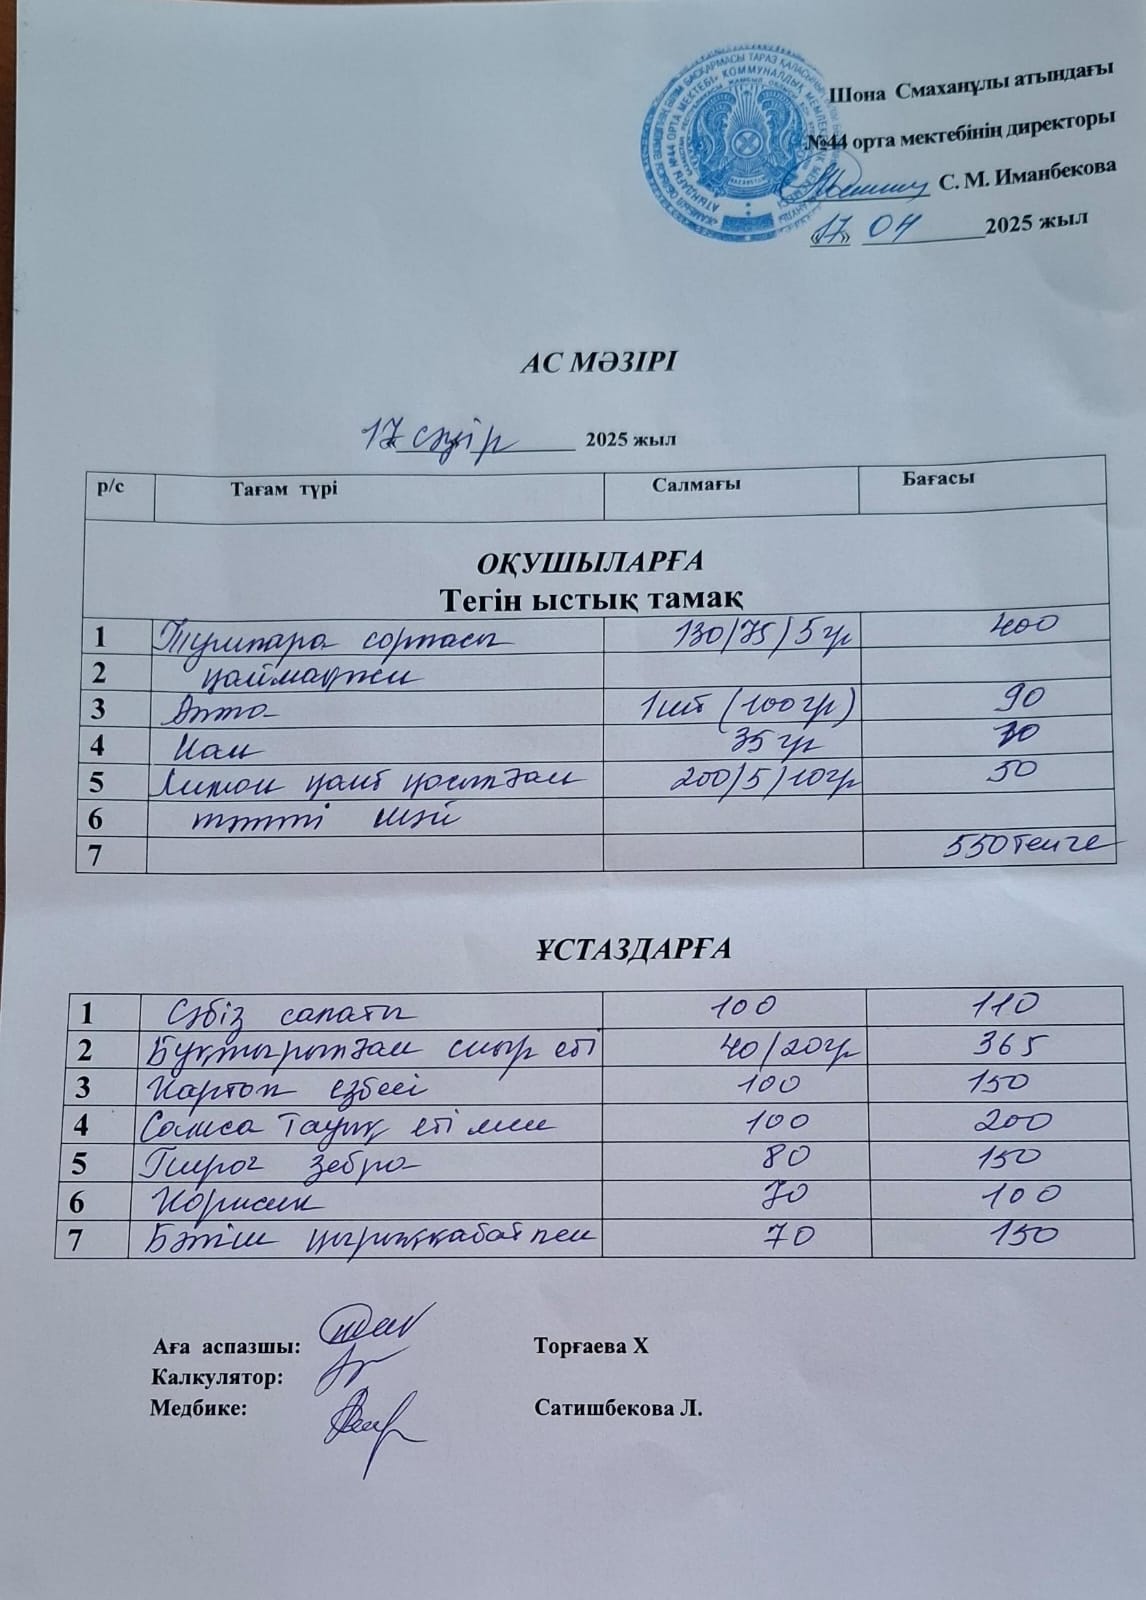 Шона Смаханұлы атындағы
№44 орта мектебінің директоры
С. М. Иманбекова
«17» 04 2025 жыл
АС МӘЗІРІ
17 сәуір 2025 жыл
р/с Тағам түрі Салмағы Бағасы
ОҚУШЫЛАРҒА
Тегін ыстық тамақ
1 Тушпара сорпасы 130/75/5 гр 400
2 қаймақпен
3 Алма 1шт (100гр) 90
4 Нан 35 гр 10
5 Лимон қант қосылған 200/5/10гр 50
6 тәтті шәй
7 550 тенге
ҰСТАЗДАРҒА
1 Сәбіз салаты 100 110
2 Бұқтырылған сиыр еті 40/20гр 365
3 Картоп езбесі 100 150
4 Самса Тауық етімен 100 200
5 Пирог зебра 80 150
6 Коржик 70 100
7 Бәліш қырыққабатпен 70 150
Аға аспазшы: Торғаева Х
Калкулятор:
Медбике: Сатишбекова Л.